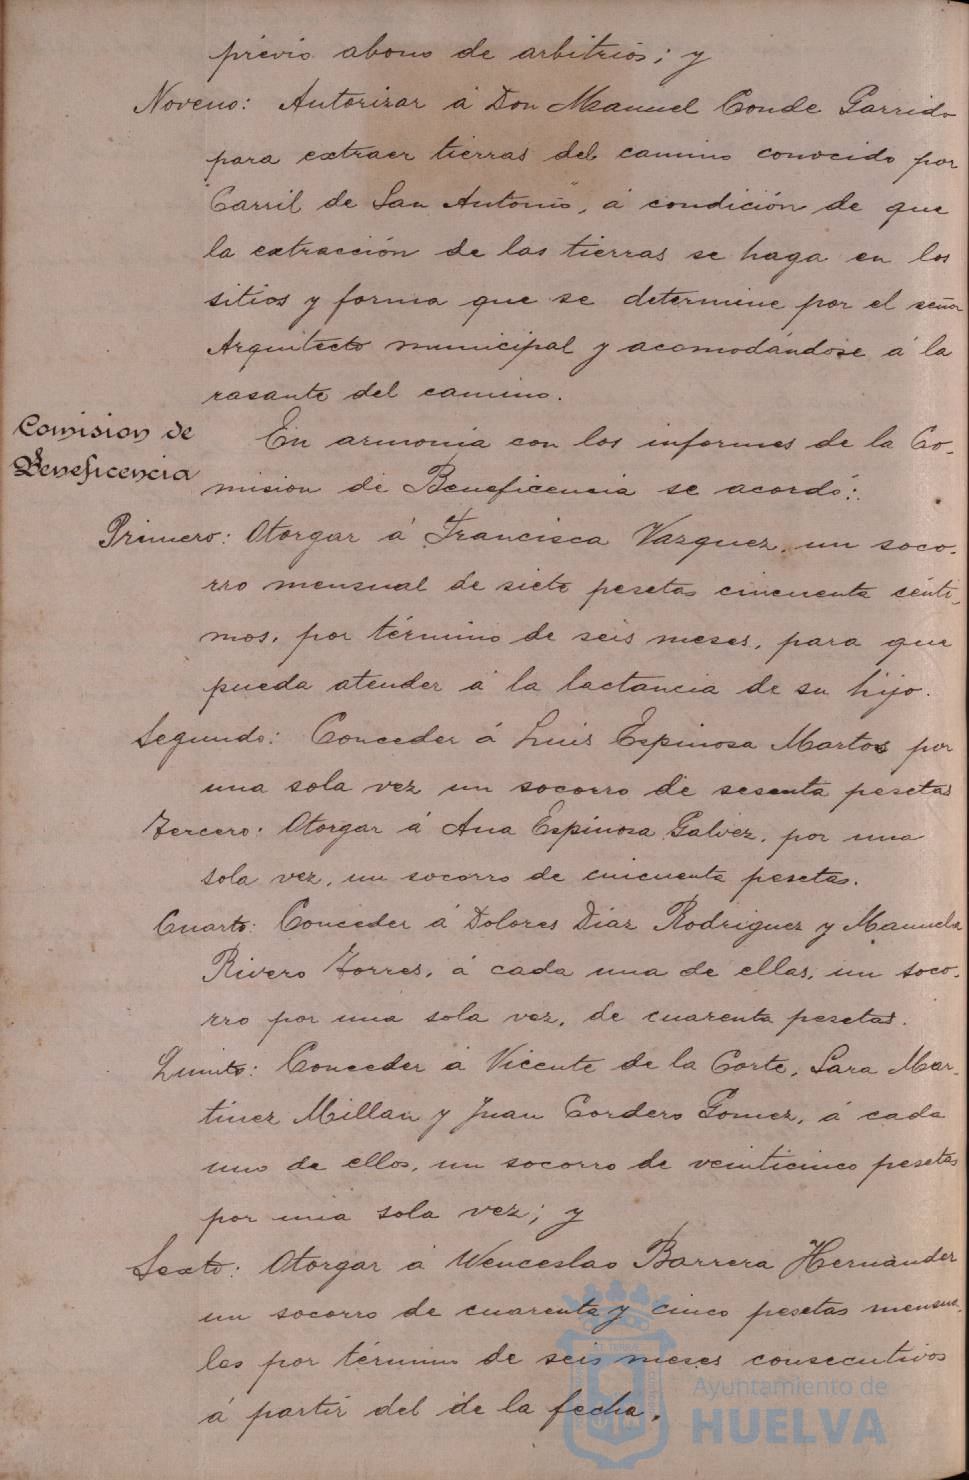 previo abono de arbitrios; y
Noveno: Autorizar á Don Manuel Conde Garrido
para extraer tierras del camino conocido por
"Carril de San Antonio", á condición de que
la extracción de las tierras se haga en los
sitios y forma que se determine por el señor
Arquitecto municipal y acomodándose á la
rasante del camino.
Comision de
Beneficencia
En armonia con los informes de la Co-
mision de Beneficencia se acordó:
Primero: Otorgar á Francisca Vazquez, un soco-
rro mensual de siete pesetas cincuenta cénti-
mos, por término de seis meses, para que
pueda atender á la lactancia de su hijo.
Segundo: Conceder á Luis Espinosa Martos por
una sola vez un socorro de sesenta pesetas
Tercero: Otorgar á Ana Espinosa Galvez, por una
sola vez, un socorro de cincuenta pesetas.
Cuarto: Conceder á Dolores Diaz Rodriguez y Manuela
Rivero Torres, á cada una de ellas, un soco-
rro por una sola vez, de cuarenta pesetas.
Quinto: Conceder á Vicente de la Corte, Sara Mar-
tinez Millan y Juan Cordero Gomez, á cada
uno de ellos, un socorro de veinticinco pesetas
por una sola vez; y
Sexto: Otorgar á Wenceslao Barrera Hernández
un socorro de cuarenta y cinco pesetas mensua-
les por término de seis meses consecutivos
á partir del de la fecha.
Ayuntamiento de
HUELVA